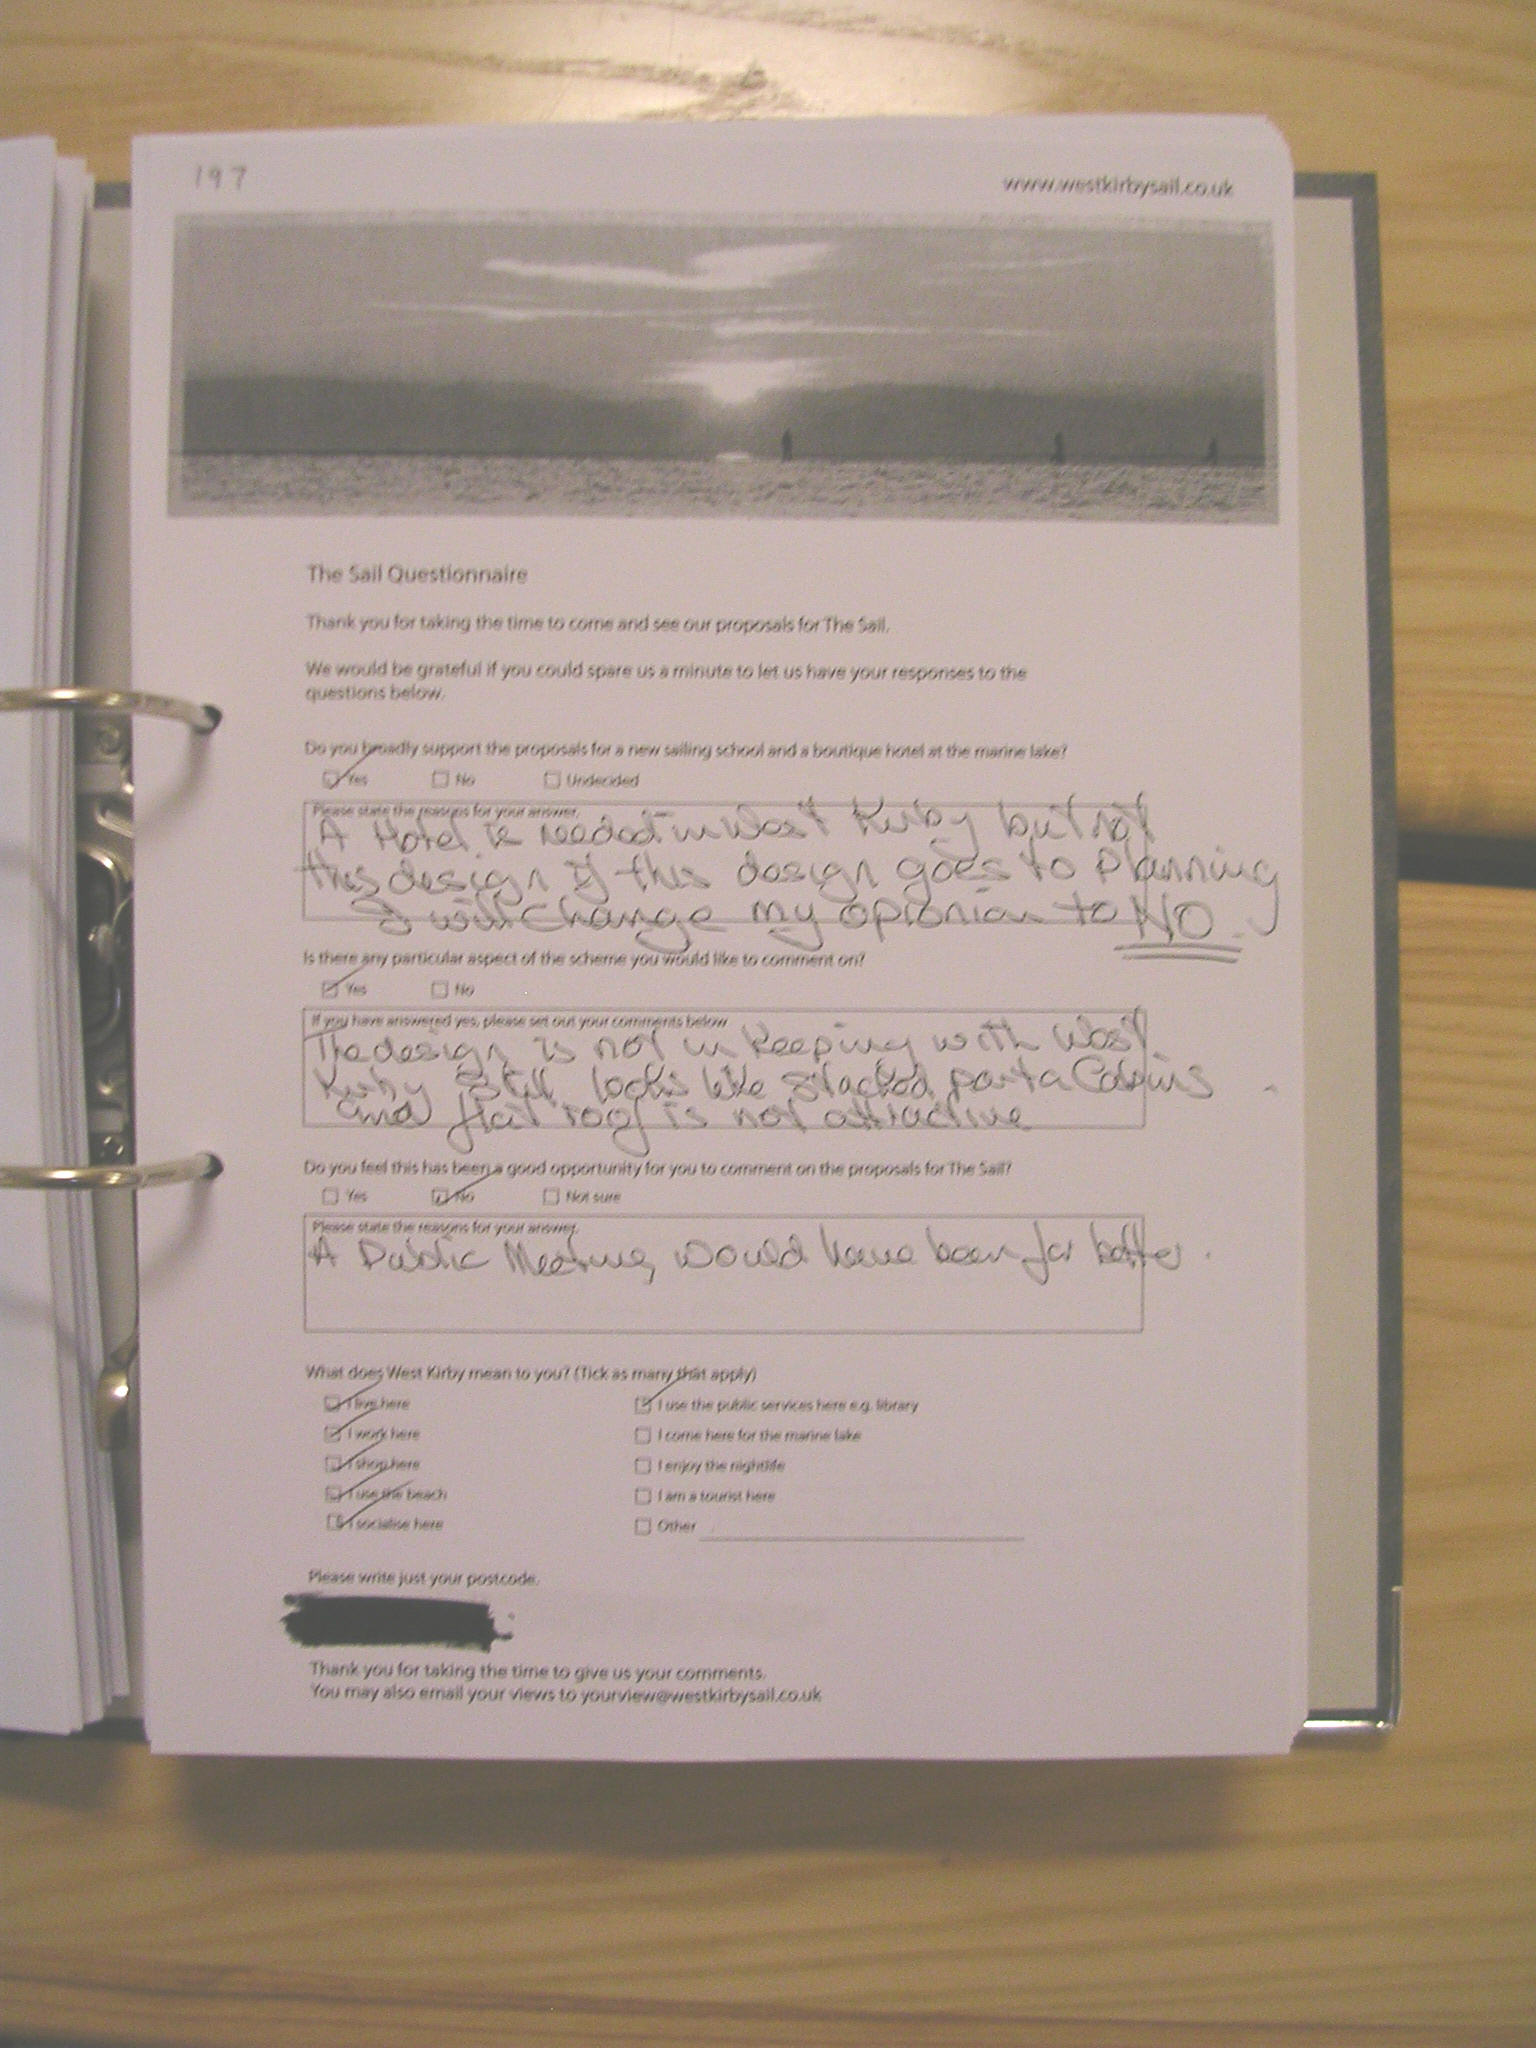 197
www.westkirbysail.co.uk
The Sail Questionnaire
Thank you for taking the time to come and see our proposals for The Sail.
We would be grateful if you could spare us a minute to let us have your responses to the
questions below.
Do you broadly support the proposals for a new sailing school and a boutique hotel at the marine lake?
Yes No Undecided
Please state the reasons for your answer.
A Hotel is needed in West Kirby but not
this design if this design goes to Planning
I will change my opionion to NO.
Is there any particular aspect of the scheme you would like to comment on?
Yes No
If you have answered yes, please set out your comments below
The design is not in keeping with West
Kirby still looks like stacked porta Cabins
and flat roof is not attractive
Do you feel this has been a good opportunity for you to comment on the proposals for The Sail?
Yes No Not sure
Please state the reasons for your answer.
A Public Meeting would have been far better.
What does West Kirby mean to you? (Tick as many that apply)
I live here I use the public services here e.g. library
I work here I come here for the marine lake
I shop here I enjoy the nightlife
I use the beach I am a tourist here
I socialise here Other
Please write just your postcode.
Thank you for taking the time to give us your comments.
You may also email your views to yourview@westkirbysail.co.uk